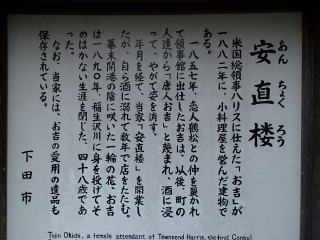 安直楼
あん ちょく ろう
米国総領事ハリスに仕えた「お吉」が
一八八二年に、小料理屋を営んだ建物で
ある。
一八五七年、恋人鶴松との仲を裂かれ
て領事館に出仕したお吉は、以後、町の
人達から「唐人お吉」と蔑まれ、酒に浸
って、やがて姿を消す。
年月を経て、当家「安直楼」を開業し
たが、自ら酒に溺れて数年で店をたたむ。
幕末開港の陰に咲いた一輪の花、お吉
は一八九〇年、稲生沢川に身を投げてそ
のはかない生涯を閉じた。四十八歳であ
った。
なお、当家には、お吉の愛用の遺品も
保存されている。
下田市
Tojin Okichi, a female attendant of Townsend Harris, the first Consul